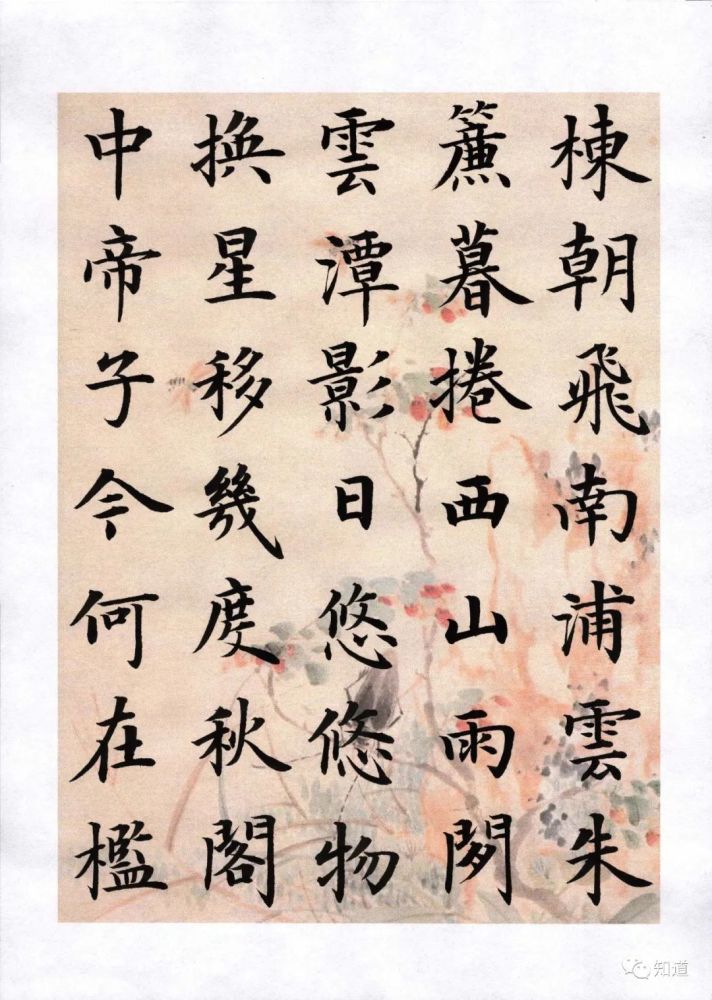 棟朝飛南浦雲朱
簾暮捲西山雨閒
雲潭影日悠悠物
換星移幾度秋閣
中帝子今何在檻
知道